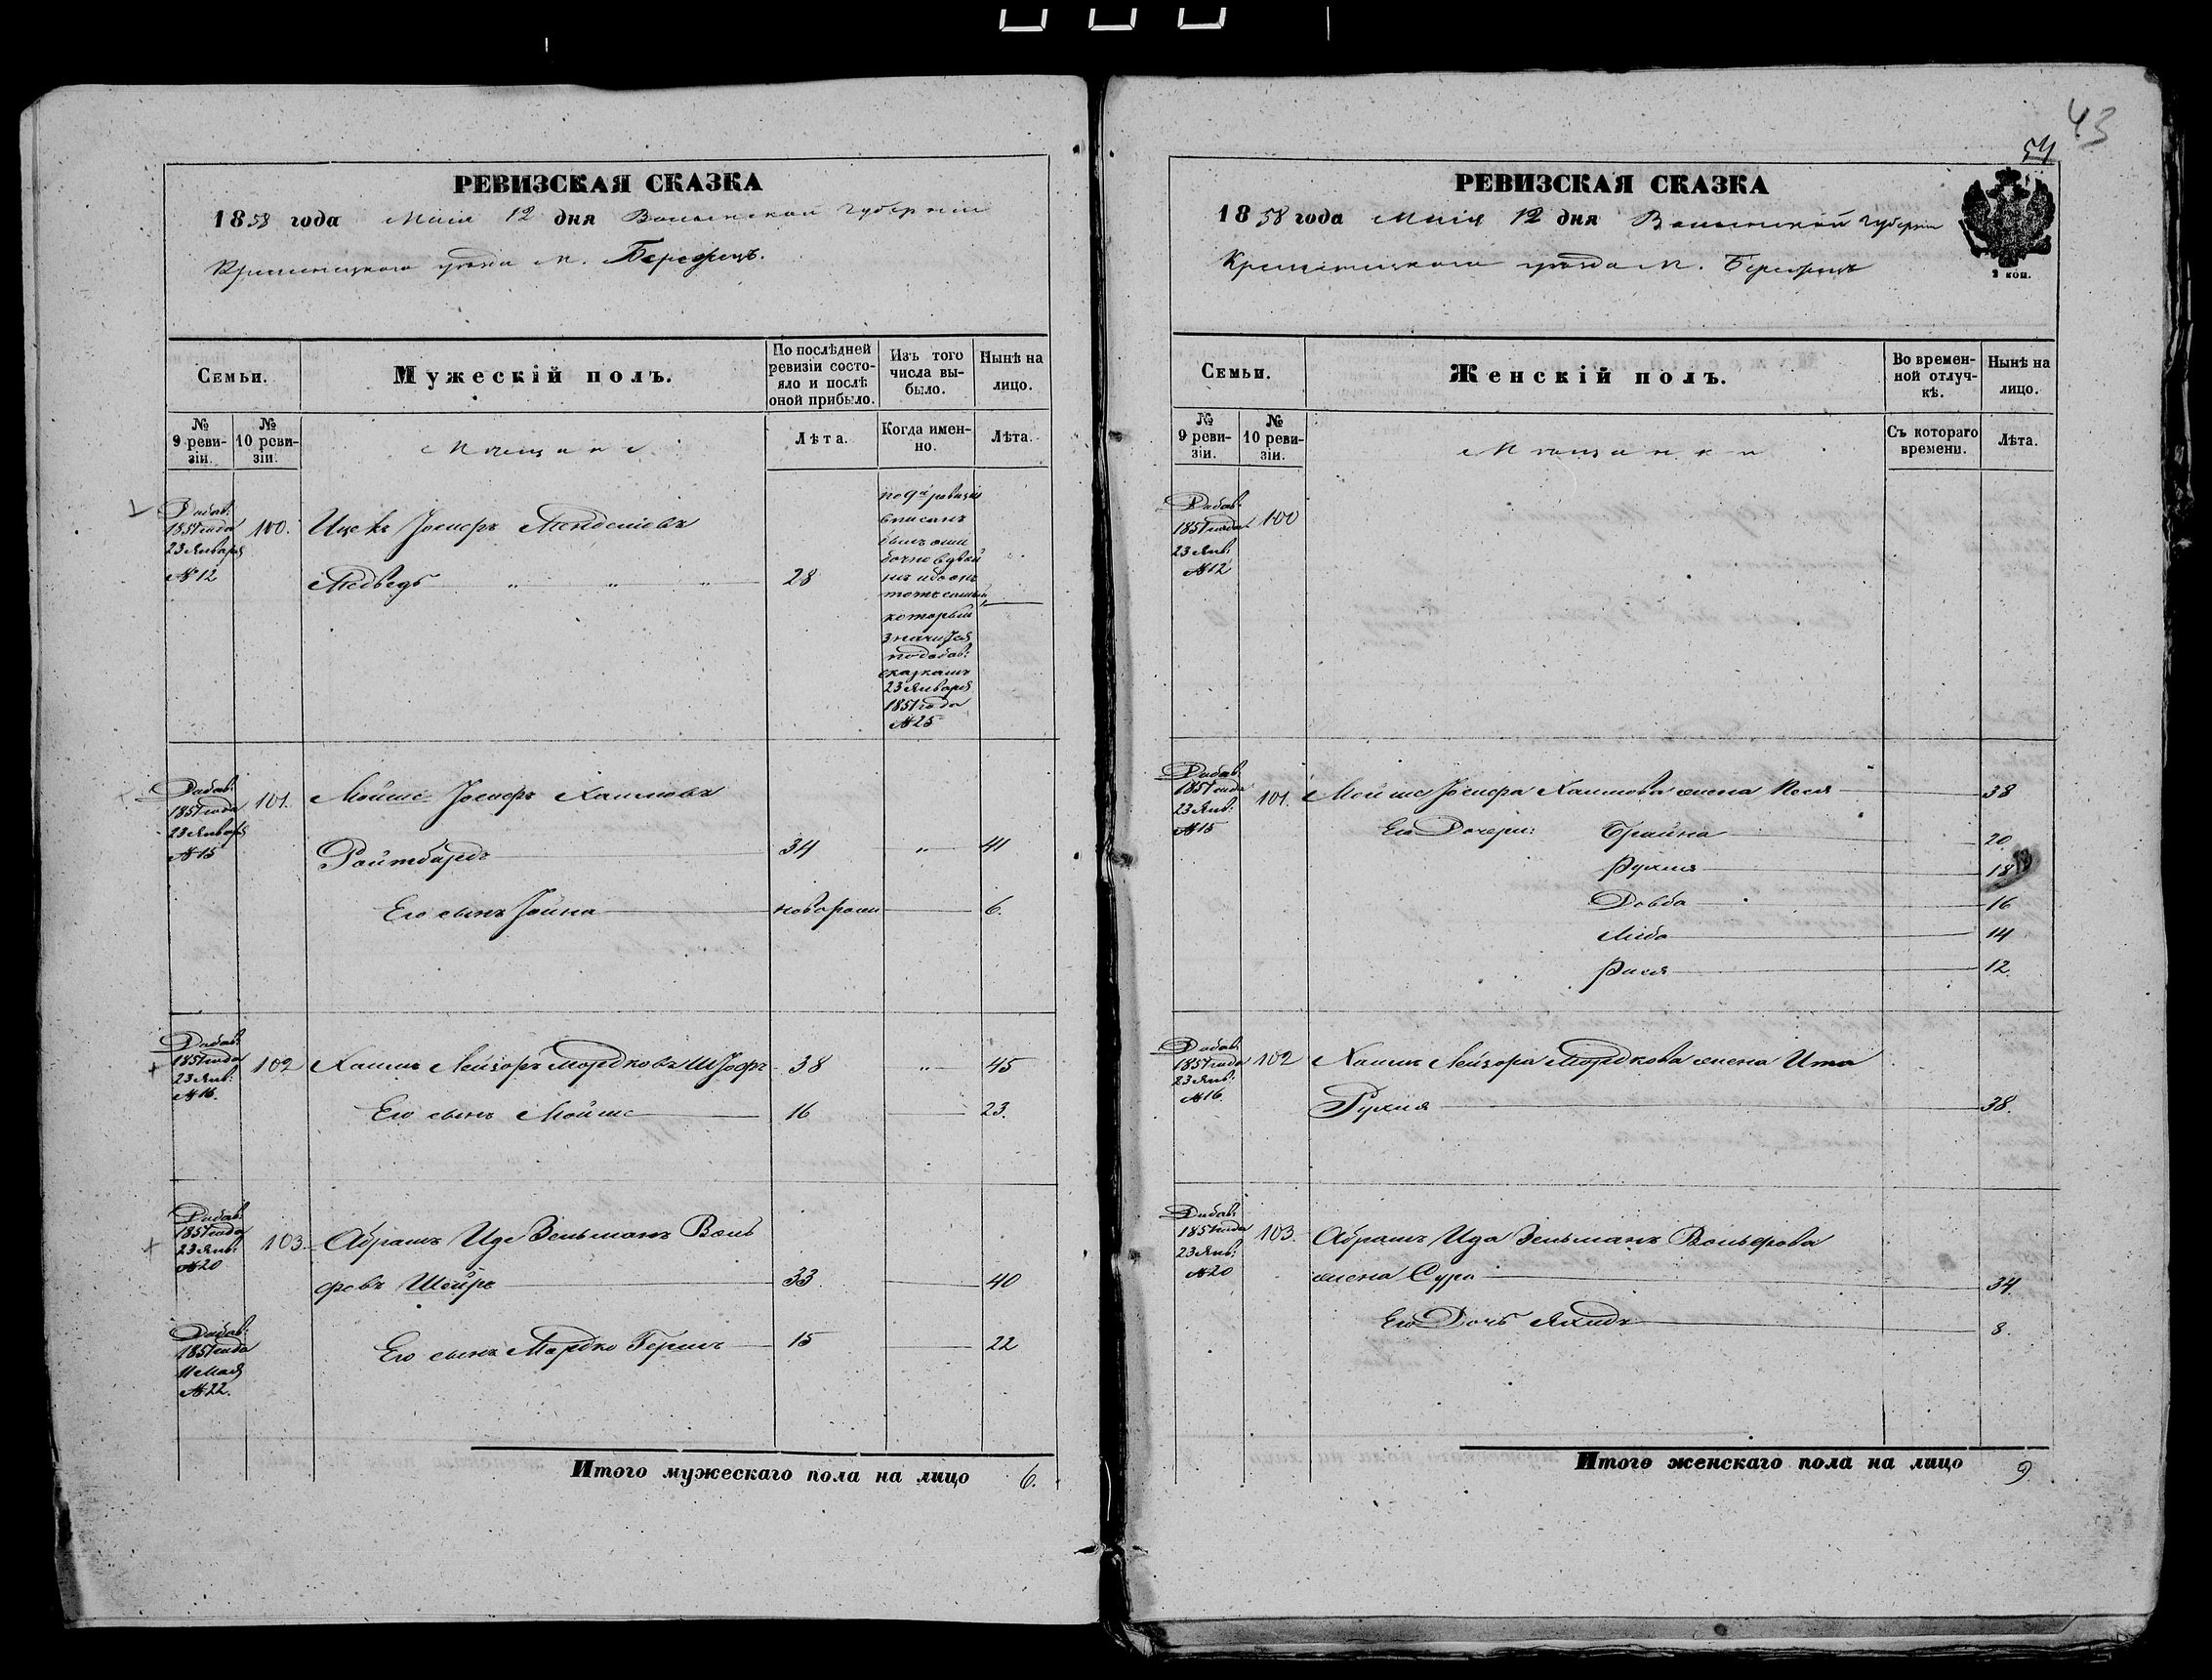 РЕВИЗСКАЯ СКАЗКА
1858 года Маія 12 дня Волынской губерніи
Кременецкого уѣзда м. Березецъ.
Семьи.
Мужескій полъ.
По послѣдней ревизіи состояло и послѣ оной прибыло.
Изъ того числа выбыло.
Нынѣ на лицо.
№ 9 ревизіи.
№ 10 ревизіи.
Мѣщане
Лѣта.
Когда именно.
Лѣта.
Добав:
1851 года
23 Января
№ 12
100.
Ицекъ Іосифъ Мендемовъ
Медведь " " " 28
по 9й ревизіи
вписанъ
былъ оши
бочно
ибо онъ
тотъ самый
который
значится
по добав:
сказкамъ
23 Января
1851 года
№ 25
Добав:
1851 года
23 Января
№ 15
101.
Мойше Іосифъ Хаимовъ
Ройтбардъ 34 " 41
Его сынъ Іойна новорож 6.
Добав:
1851 года
23 Янв:
№ 16.
102
Хаимъ Лейзоръ Мордковъ 38 " 45
Его сынъ Мойше 16 23.
Добав:
1851 года
23 Янв:
№ 20
103.
Абрамъ Иде Зельманъ Воль
фовъ Шойре 33 40
Добав:
1851 года
11 Мая
№ 22.
Его сынъ Мордко Гершъ 15 22
Итого мужескаго пола на лицо 6.
43
54
РЕВИЗСКАЯ СКАЗКА
1858 года Маія 12 дня Волынской губерніи
Кременецкого уѣзда м. Березецъ
2 коп.
Семьи.
Женскій полъ.
Во временной отлучкѣ.
Нынѣ на лицо.
№ 9 ревизіи.
№ 10 ревизіи.
Мѣщанки
Съ котораго времени.
Лѣта.
Добав:
1851 года
23 Янв:
№ 12
100
Добав:
1851 года
23 Янв:
№ 15
101.
Мойше Іосифа Хаимова жена Песя 38
Его Дочери: Брайна 20
Рухля 18
Довба 16
Либа 14
Рися 12.
Добав:
1851 года
23 Янв:
№ 16.
102
Хаимъ Лейзора Мордкова жена Ита
Рухля 38.
Добав:
1851 года
23 Янв:
№ 20
103.
Абрамъ Ида Зельманъ Вольфова
жена Сура 34.
Его Дочь 8.
Итого женскаго пола на лицо 9.